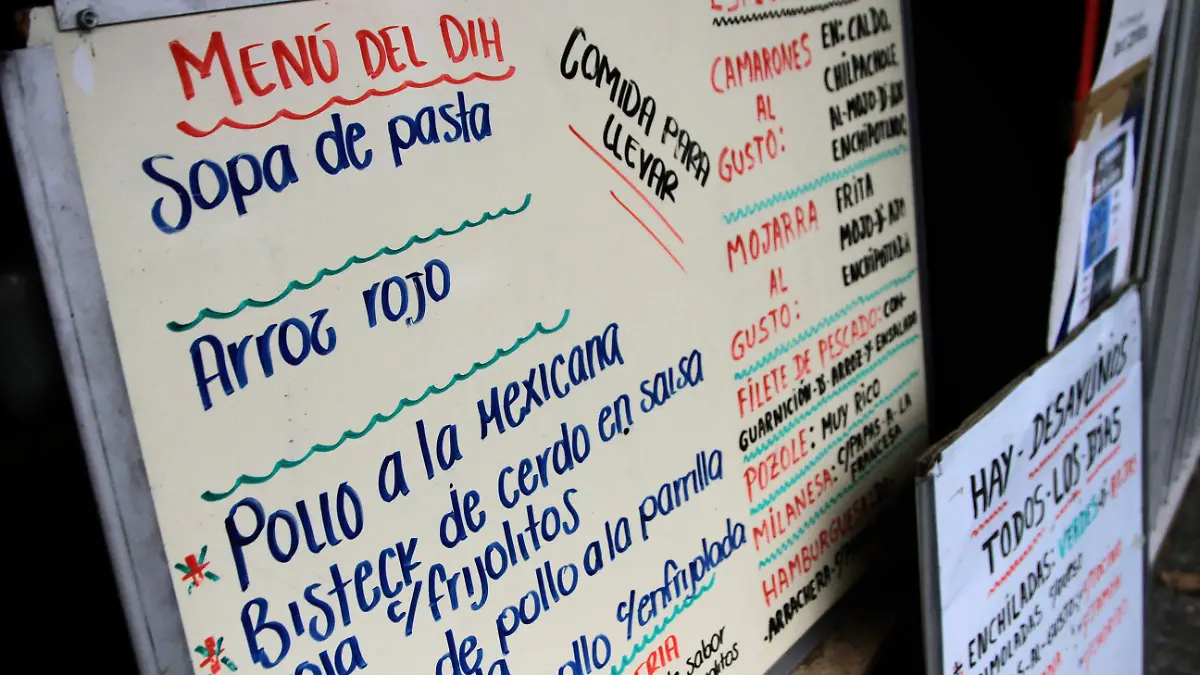 MENÚ DEL DIH
Sopa de pasta
Arroz rojo
Pollo a la Mexicana
Bisteck de cerdo en salsa
c/frijolitos
de pollo a la parrilla
c/enfrijolada
COMIDA PARA
LLEVAR
CAMARONES
AL
GUSTO:
EN: CALDO.
CHILPACHOLE.
AL-MOJO-D-AJO
ENCHIPOTLADOS
MOJARRA
AL
GUSTO:
FRITA
MOJO-D-AJO
ENCHIPOTLADA
FILETE DE PESCADO: CON-
GUARNICIÓN-D-ARROZ-Y-ENSALADA
POZOLE: MUY RICO
MILANESA: C/PAPAS-A-LA
FRANCESA
HAMBURGUESA:
-ARRACHERA-
de sabor
HAY-DESAYUNOS
TODOS-LOS-DÍAS
*ENCHILADAS: VERDES-Ó-ROJAS
-AL-GUSTO: